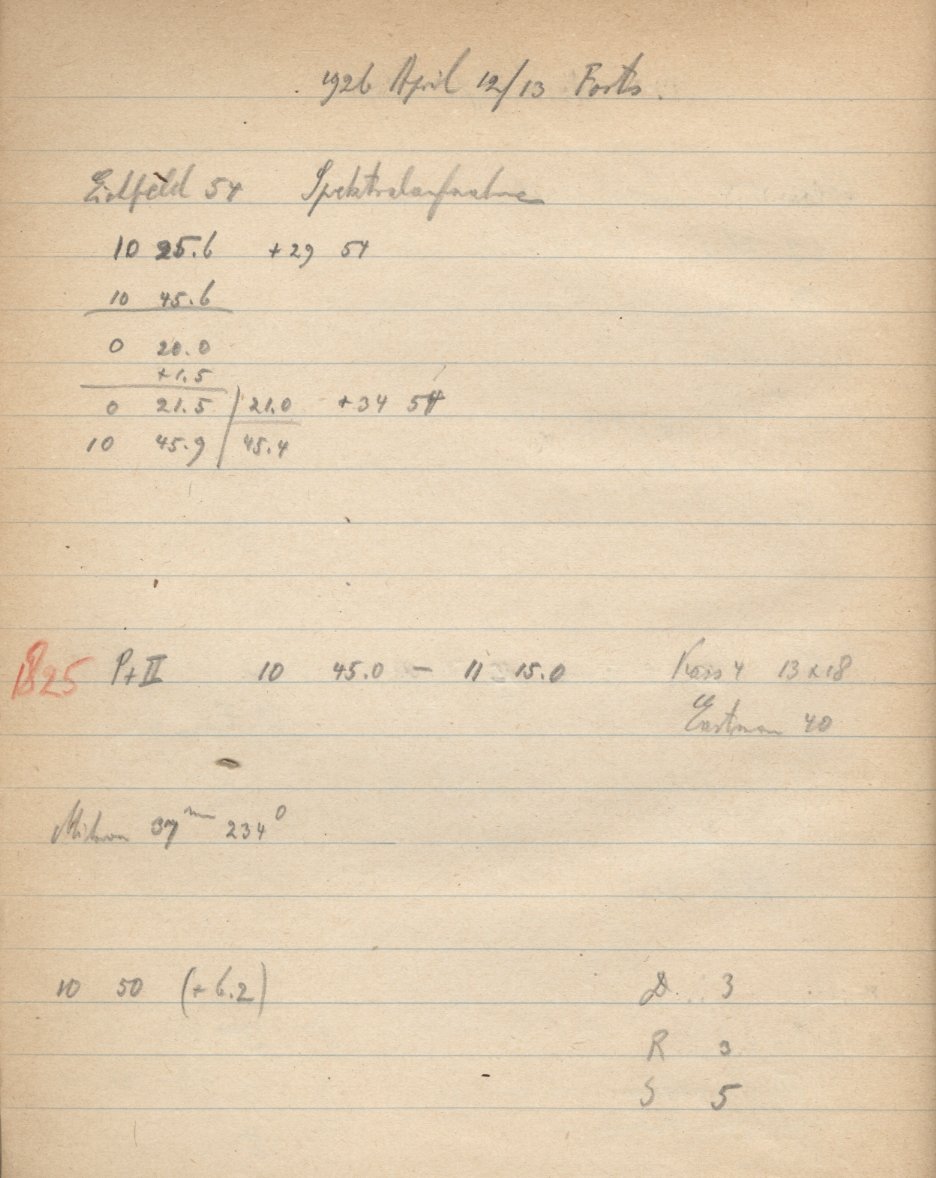 1926 April 12/13 Forts.
Eichfeld 54 Spektralaufnahme
10 25.6 +29 54
10 45.6
0 20.0
+1.5
0 21.5 21.0 +34 54
10 45.9 45.4
1825 Pt II 10 45.0 – 11 15.0 Kass 4 13x18
Eastman 40
37 mm 234°
10 50 (+6.2) D. 3
R 3
S 5